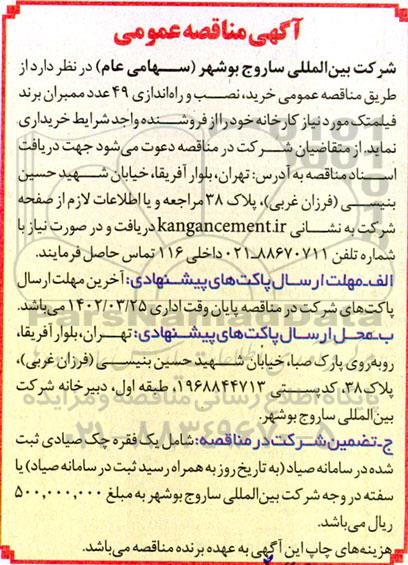 آگهی مناقصه عمومی
شرکت بین‌المللی ساروج بوشهر (سهامی عام) در نظر دارد از
طریق مناقصه عمومی خرید، نصب و راه‌اندازی ۴۹ عدد ممبران برند
فیلمتک مورد نیاز کارخانه خود را از فروشنده واجد شرایط خریداری
نماید. از متقاضیان شرکت در مناقصه دعوت می‌شود جهت دریافت
اسناد مناقصه به آدرس: تهران، بلوار آفریقا، خیابان شهید حسین
بنیسی (فرزان غربی)، پلاک ۳۸ مراجعه و یا اطلاعات لازم از صفحه
شرکت به نشانی kangancement.ir دریافت و در صورت نیاز با
شماره تلفن ۸۸۶۷۰۷۱۱-۰۲۱ داخلی ۱۱۶ تماس حاصل فرمایند.
الف-مهلت ارسال پاکت‌های پیشنهادی: آخرین مهلت ارسال
پاکت‌های شرکت در مناقصه پایان وقت اداری ۱۴۰۲/۰۳/۲۵ می‌باشد.
ب-محل ارسال پاکت‌های پیشنهادی: تهران، بلوار آفریقا،
روبه‌روی پارک صبا، خیابان شهید حسین بنیسی (فرزان غربی)،
پلاک ۳۸، کدپستی ۱۹۶۸۸۴۴۷۱۳، طبقه اول، دبیرخانه شرکت
بین‌المللی ساروج بوشهر.
ج-تضمین شرکت در مناقصه: شامل یک فقره چک صیادی ثبت
شده در سامانه صیاد (به تاریخ روز به همراه رسید ثبت در سامانه صیاد) یا
سفته در وجه شرکت بین‌المللی ساروج بوشهر به مبلغ ۵۰۰,۰۰۰,۰۰۰
ریال می‌باشد.
هزینه‌های چاپ این آگهی به عهده برنده مناقصه می‌باشد.
ParsNamadData
پایگاه اطلاع رسانی مناقصه و مزایده